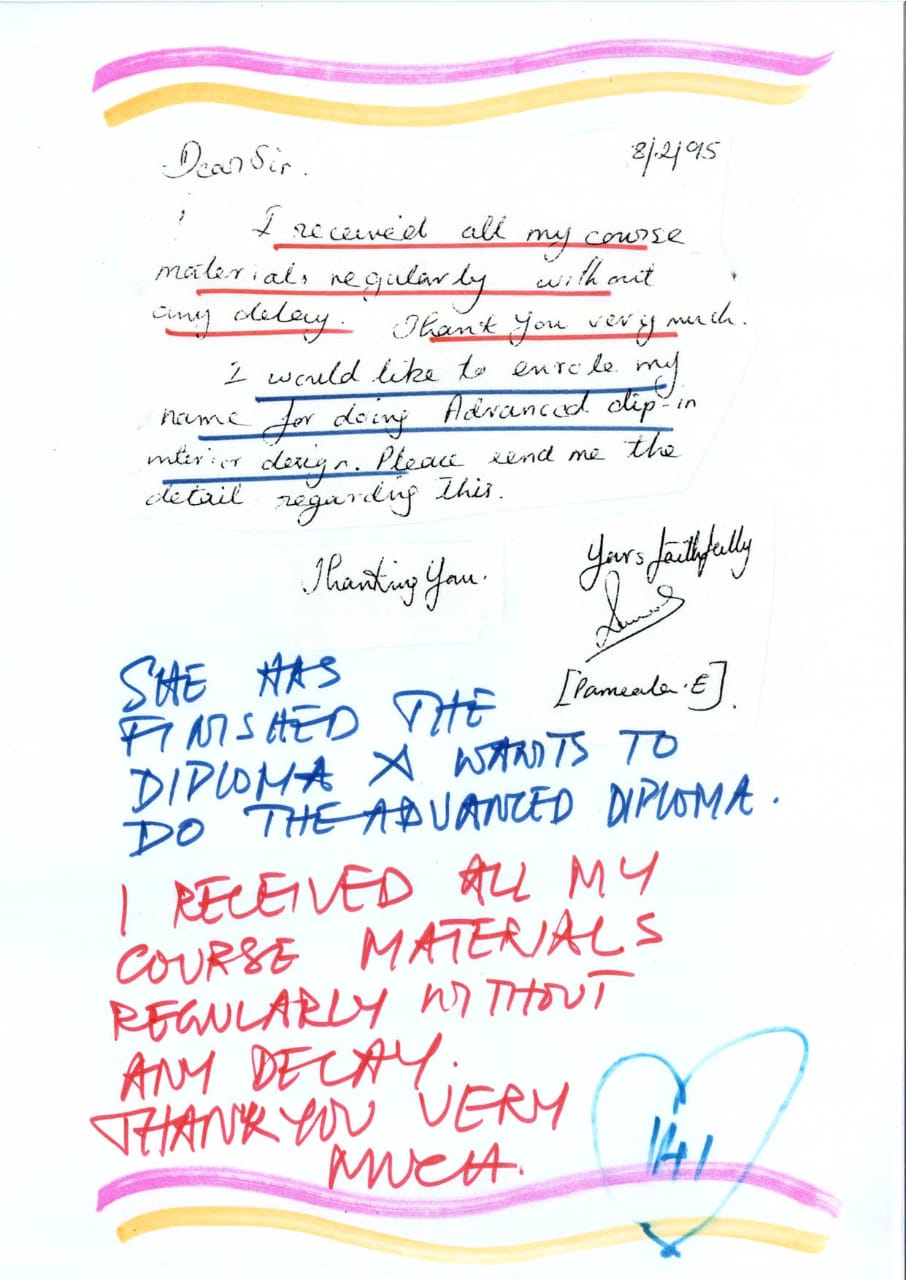 Dear Sir.
8/2/95
I received all my course
materials regularly without
any delay. Thank you very much.
I would like to enrole my
name for doing Advanced dip-in
interior design. Please send me the
detail regarding this.
Thanking You.
Yours faithfully
[Pameala.E].
SHE HAS
FINISHED THE
DIPLOMA & WANTS TO
DO THE ADVANCED DIPLOMA.
I RECEIVED ALL MY
COURSE MATERIALS
REGULARLY WITHOUT
ANY DELAY.
THANK YOU VERY
MUCH.
141